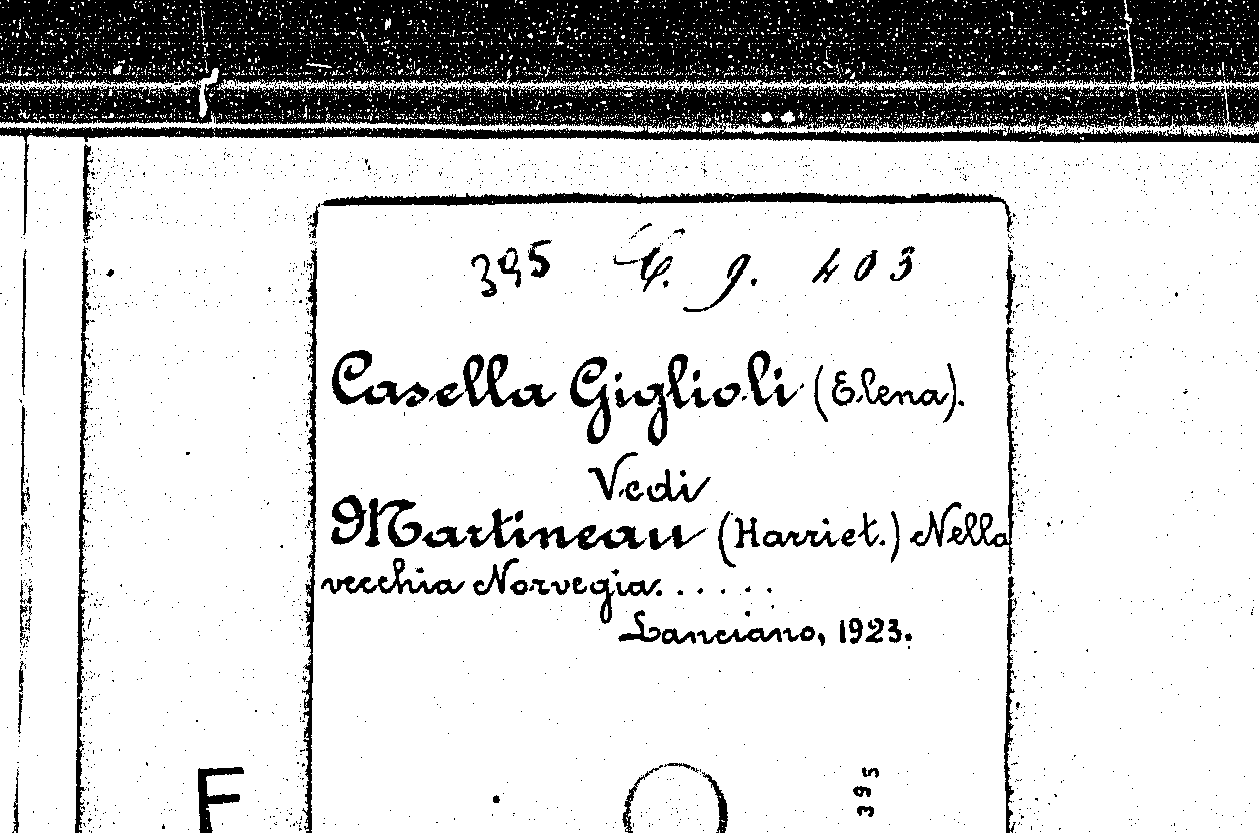 395 C. g. 403
Casella Giglioli (Elena).
Vedi
Martineau (Harriet.) Nella
vecchia Norvegia......
Lanciano, 1923.
395
F